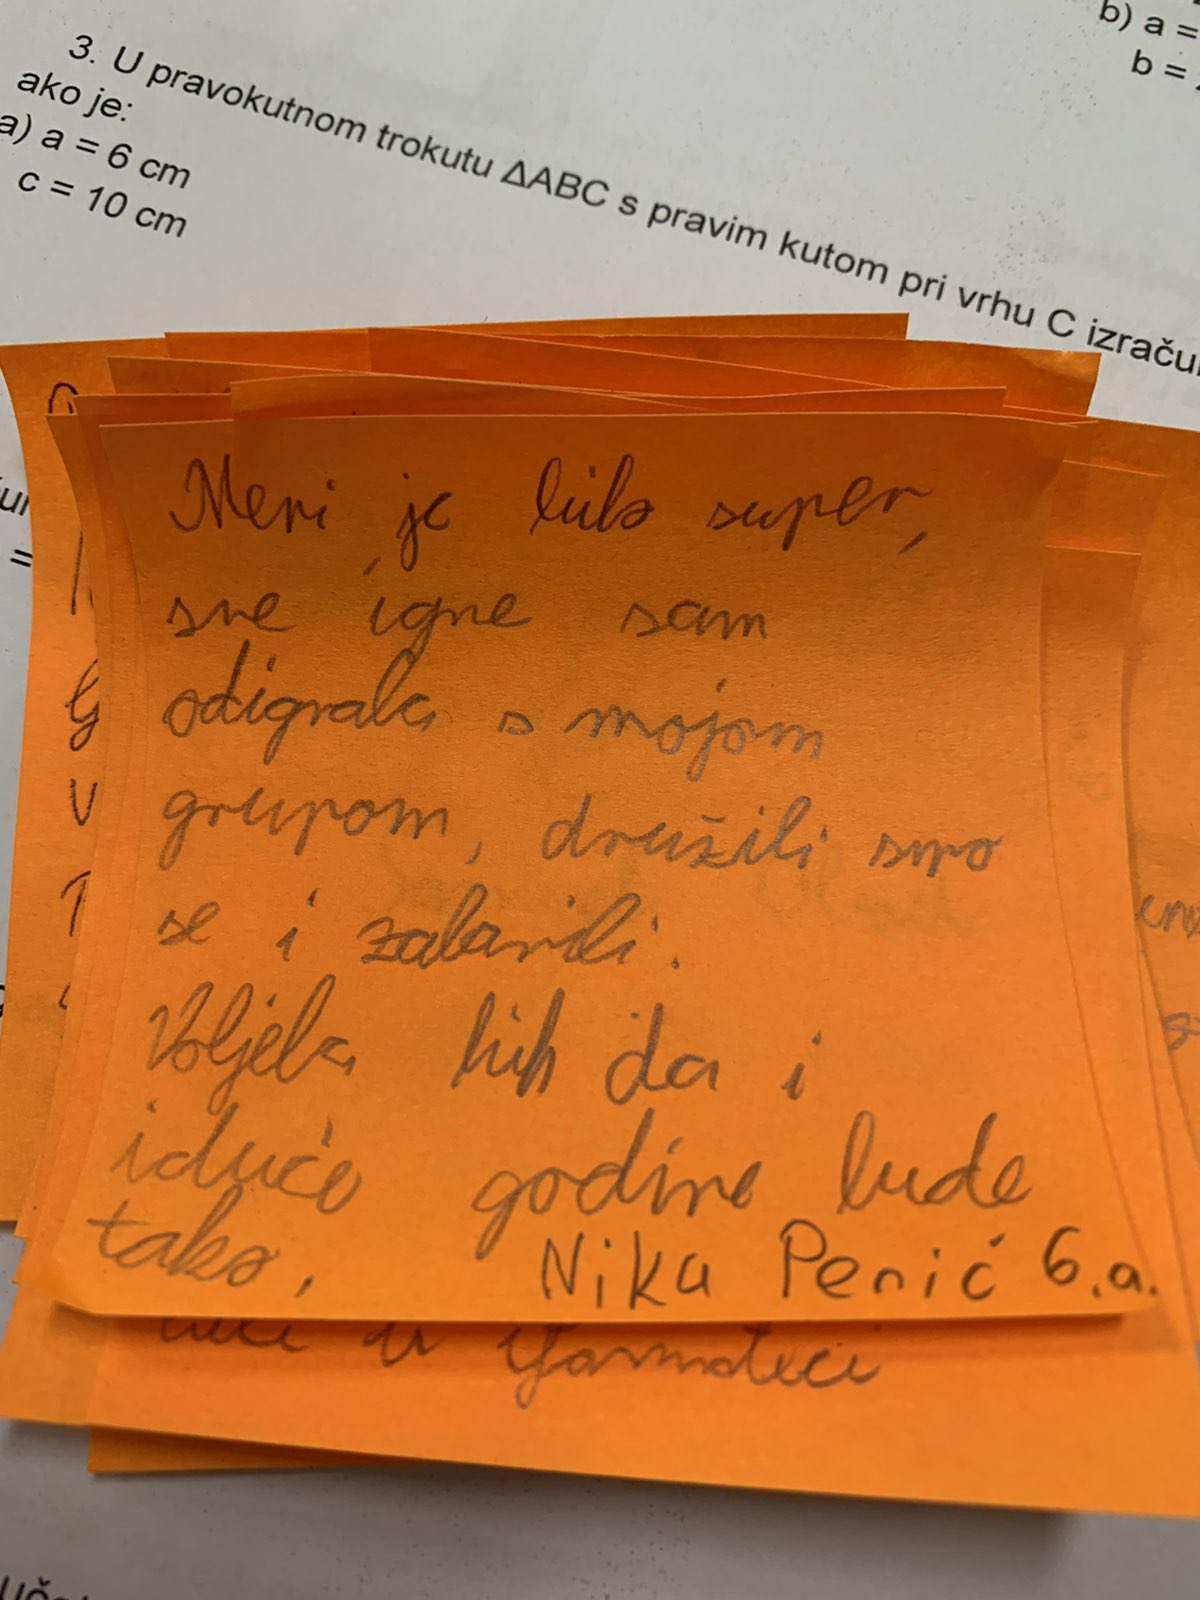 b) a =
b =
3. U pravokutnom trokutu ΔABC s pravim kutom pri vrhu C izraču
ako je:
a) a = 6 cm
c = 10 cm
=
Meni je bilo super,
sve igre sam
odigrala s mojom
grupom, družili smo
se i zabavili.
Voljela bih da i
iduće godine bude
tako.
Nika Penić 6.a.
u